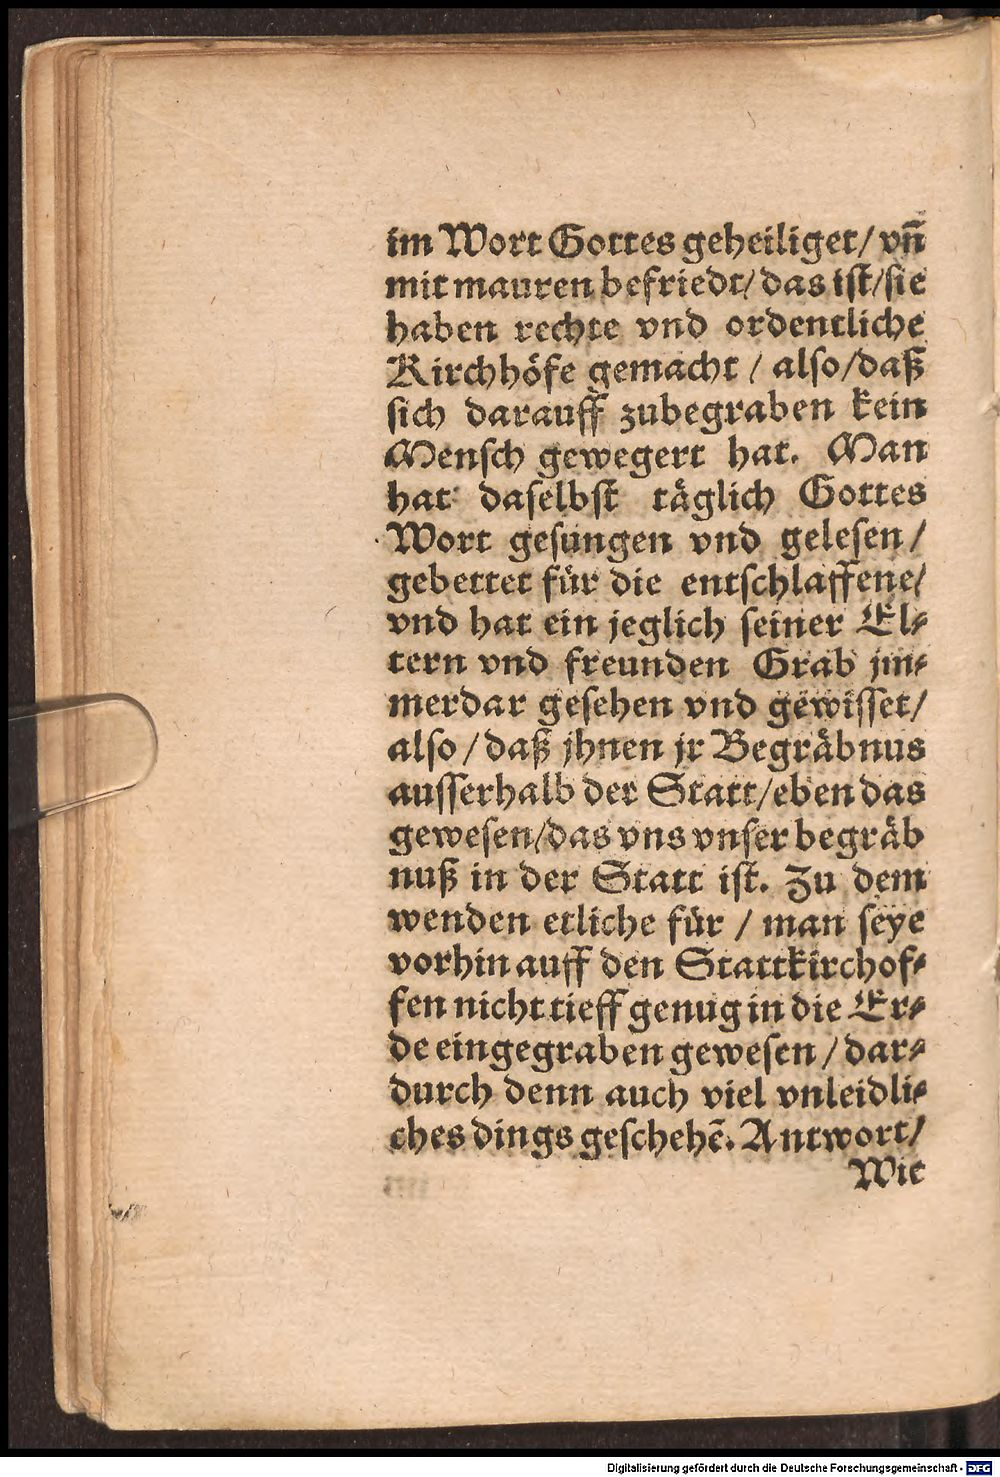 im Wort Gottes geheiliget / vñ
mit mauren befriedt / das ist / sie
haben rechte vnd ordentliche
Kirchhöfe gemacht / also / daß
sich darauff zubegraben kein
Mensch gewegert hat. Man
hat daselbst täglich Gottes
Wort gesungen vnd gelesen /
gebettet für die entschlaffene /
vnd hat ein jeglich seiner El⸗
tern vnd freunden Grab jm⸗
merdar gesehen vnd gewisset /
also / daß jhnen jr Begräbnus
ausserhalb der Statt / eben das
gewesen / das vns vnser begräb
nuß in der Statt ist. Zu dem
wenden etliche für / man seye
vorhin auff den Stattkirchof⸗
fen nicht tieff genug in die Er⸗
de eingegraben gewesen / dar⸗
durch denn auch viel vnleidli⸗
ches dings geschehẽ. Antwort /
Wie
Digitalisierung gefördert durch die Deutsche Forschungsgemeinschaft - DFG